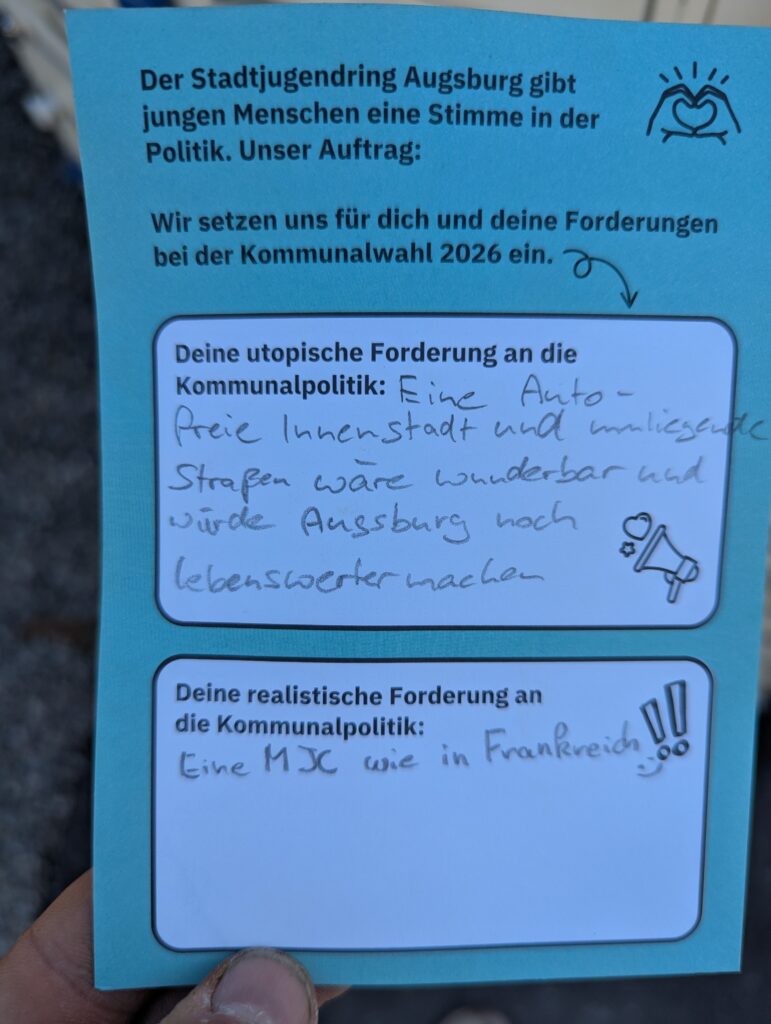 Der Stadtjugendring Augsburg gibt
jungen Menschen eine Stimme in der
Politik. Unser Auftrag:
Wir setzen uns für dich und deine Forderungen
bei der Kommunalwahl 2026 ein.
Deine utopische Forderung an die
Kommunalpolitik: Eine Auto-
freie Innenstadt und umliegende
Straßen wäre wunderbar und
würde Augsburg noch
lebenswerter machen
Deine realistische Forderung an
die Kommunalpolitik:
Eine MJC wie in Frankreich :)